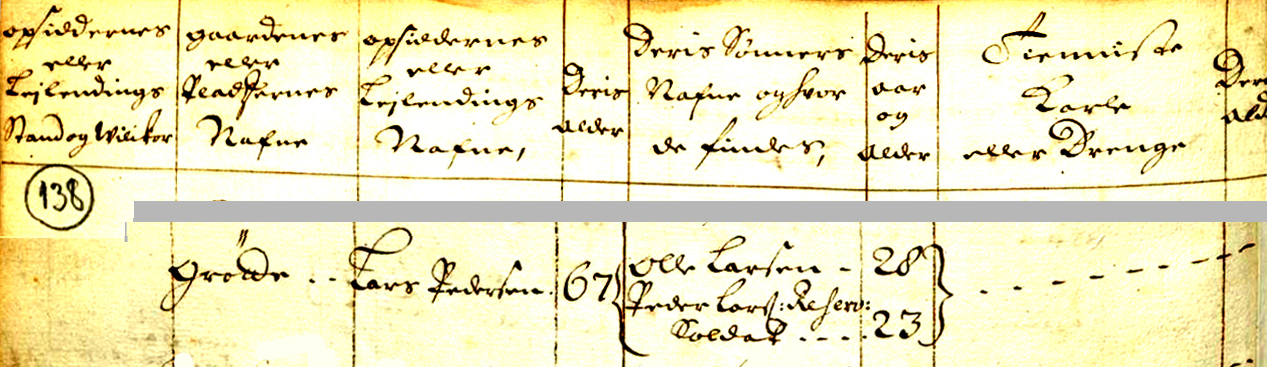 opsiddernes
eller
Leilendings
Stand og Wilikor
gaardenes
eller
Pladsernes
Nafne
opsiddernes
eller
Leilendings
Nafne,
Deris
alder
Deris Sønners
Nafne og hvor
de findes,
Deris
aar
og
alder
Tienniste
Karle
eller Drenge
Der
ald
138
Grøtde .. Lars Pedersen. 67 { Olle Larsen - 28 }
Peder Larss: Reserv:
Soldat .... 23